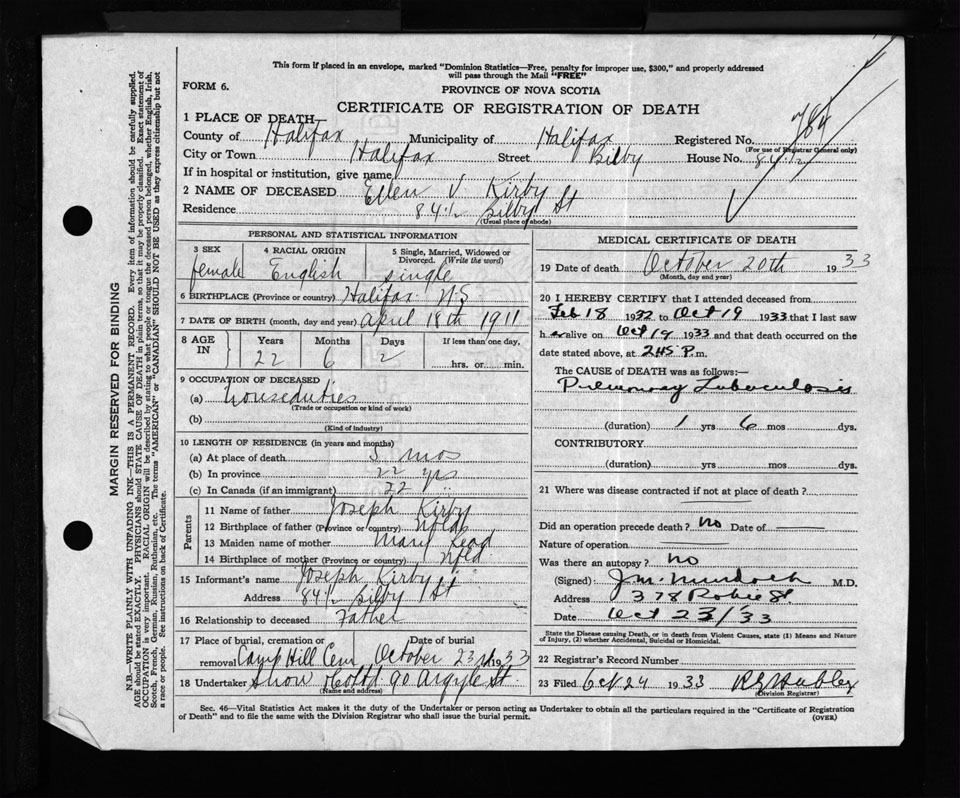 This form if placed in an envelope, marked "Dominion Statistics—Free, penalty for improper use, $300," and properly addressed
will pass through the Mail "FREE"
FORM 6.
PROVINCE OF NOVA SCOTIA
CERTIFICATE OF REGISTRATION OF DEATH
1 PLACE OF DEATH—
County of Halifax Municipality of Halifax Registered No. 784
(For use of Registrar General only)
City or Town Halifax Street Bilby House No. 84½
If in hospital or institution, give name
2 NAME OF DECEASED Ellen V. Kirby
Residence 84½ Bilby St
(Usual place of abode)
PERSONAL AND STATISTICAL INFORMATION
3 SEX 4 RACIAL ORIGIN 5 Single, Married, Widowed or
Divorced. (Write the word)
female English single
6 BIRTHPLACE (Province or country) Halifax N.S
7 DATE OF BIRTH (month, day and year) April 18th 1911
8 AGE IN Years Months Days If less than one day,
22 6 2 hrs. or min.
9 OCCUPATION OF DECEASED
(a) Houseduties
(Trade or occupation or kind of work)
(b)
(Kind of industry)
10 LENGTH OF RESIDENCE (in years and months)
(a) At place of death mos
(b) In province 22 yrs
(c) In Canada (if an immigrant) 22 "
Parents
11 Name of father Joseph Kirby
12 Birthplace of father (Province or country) Nfld
13 Maiden name of mother Mary
14 Birthplace of mother (Province or country) Nfld
15 Informant's name Joseph Kirby
Address 84½ Bilby St
16 Relationship to deceased Father
17 Place of burial, cremation or Date of burial
removal Camp Hill Cem October 23rd 1933
18 Undertaker Snow & Co Ltd 90 Argyle St
(Name and address)
MEDICAL CERTIFICATE OF DEATH
19 Date of death October 20th 1933
(Month, day and year)
20 I HEREBY CERTIFY that I attended deceased from
Feb 18 1932 to Oct 19 1933 that I last saw
her alive on Oct 19 1933 and that death occurred on the
date stated above, at 2.45 P. m.
The CAUSE OF DEATH was as follows:—
Pulmonary Tuberculosis
(duration) 1 yrs 6 mos dys.
CONTRIBUTORY
(duration) yrs mos dys.
21 Where was disease contracted if not at place of death?
Did an operation precede death? no Date of
Nature of operation
Was there an autopsy? no
(Signed): J.M. Murdoch M.D.
Address 378 Robie St.
Date Oct 23/33
State the Disease causing Death, or in death from Violent Causes, state (1) Means and Nature
of Injury, (2) whether Accidental, Suicidal or Homicidal.
22 Registrar's Record Number
23 Filed Oct 24 1933
(Division Registrar)
Sec. 46—Vital Statistics Act makes it the duty of the Undertaker or person acting as Undertaker to obtain all the particulars required in the "Certificate of Registration
of Death" and to file the same with the Division Registrar who shall issue the burial permit.
(OVER)
MARGIN RESERVED FOR BINDING
N.B.—WRITE PLAINLY WITH UNFADING INK—THIS IS A PERMANENT RECORD. Every item of information should be carefully supplied.
AGE should be stated EXACTLY. PHYSICIANS should STATE CAUSE OF DEATH in plain terms, so that it may be properly classified. Exact statement of
OCCUPATION is very important. RACIAL ORIGIN will be described by stating to what people or tongue the deceased person belonged, whether English, Irish,
Scotch, French, German, Russian, Ruthenian, etc. The terms "AMERICAN" or "CANADIAN" SHOULD NOT BE USED as they express citizenship but not
a race or people. See instructions on back of Certificate.